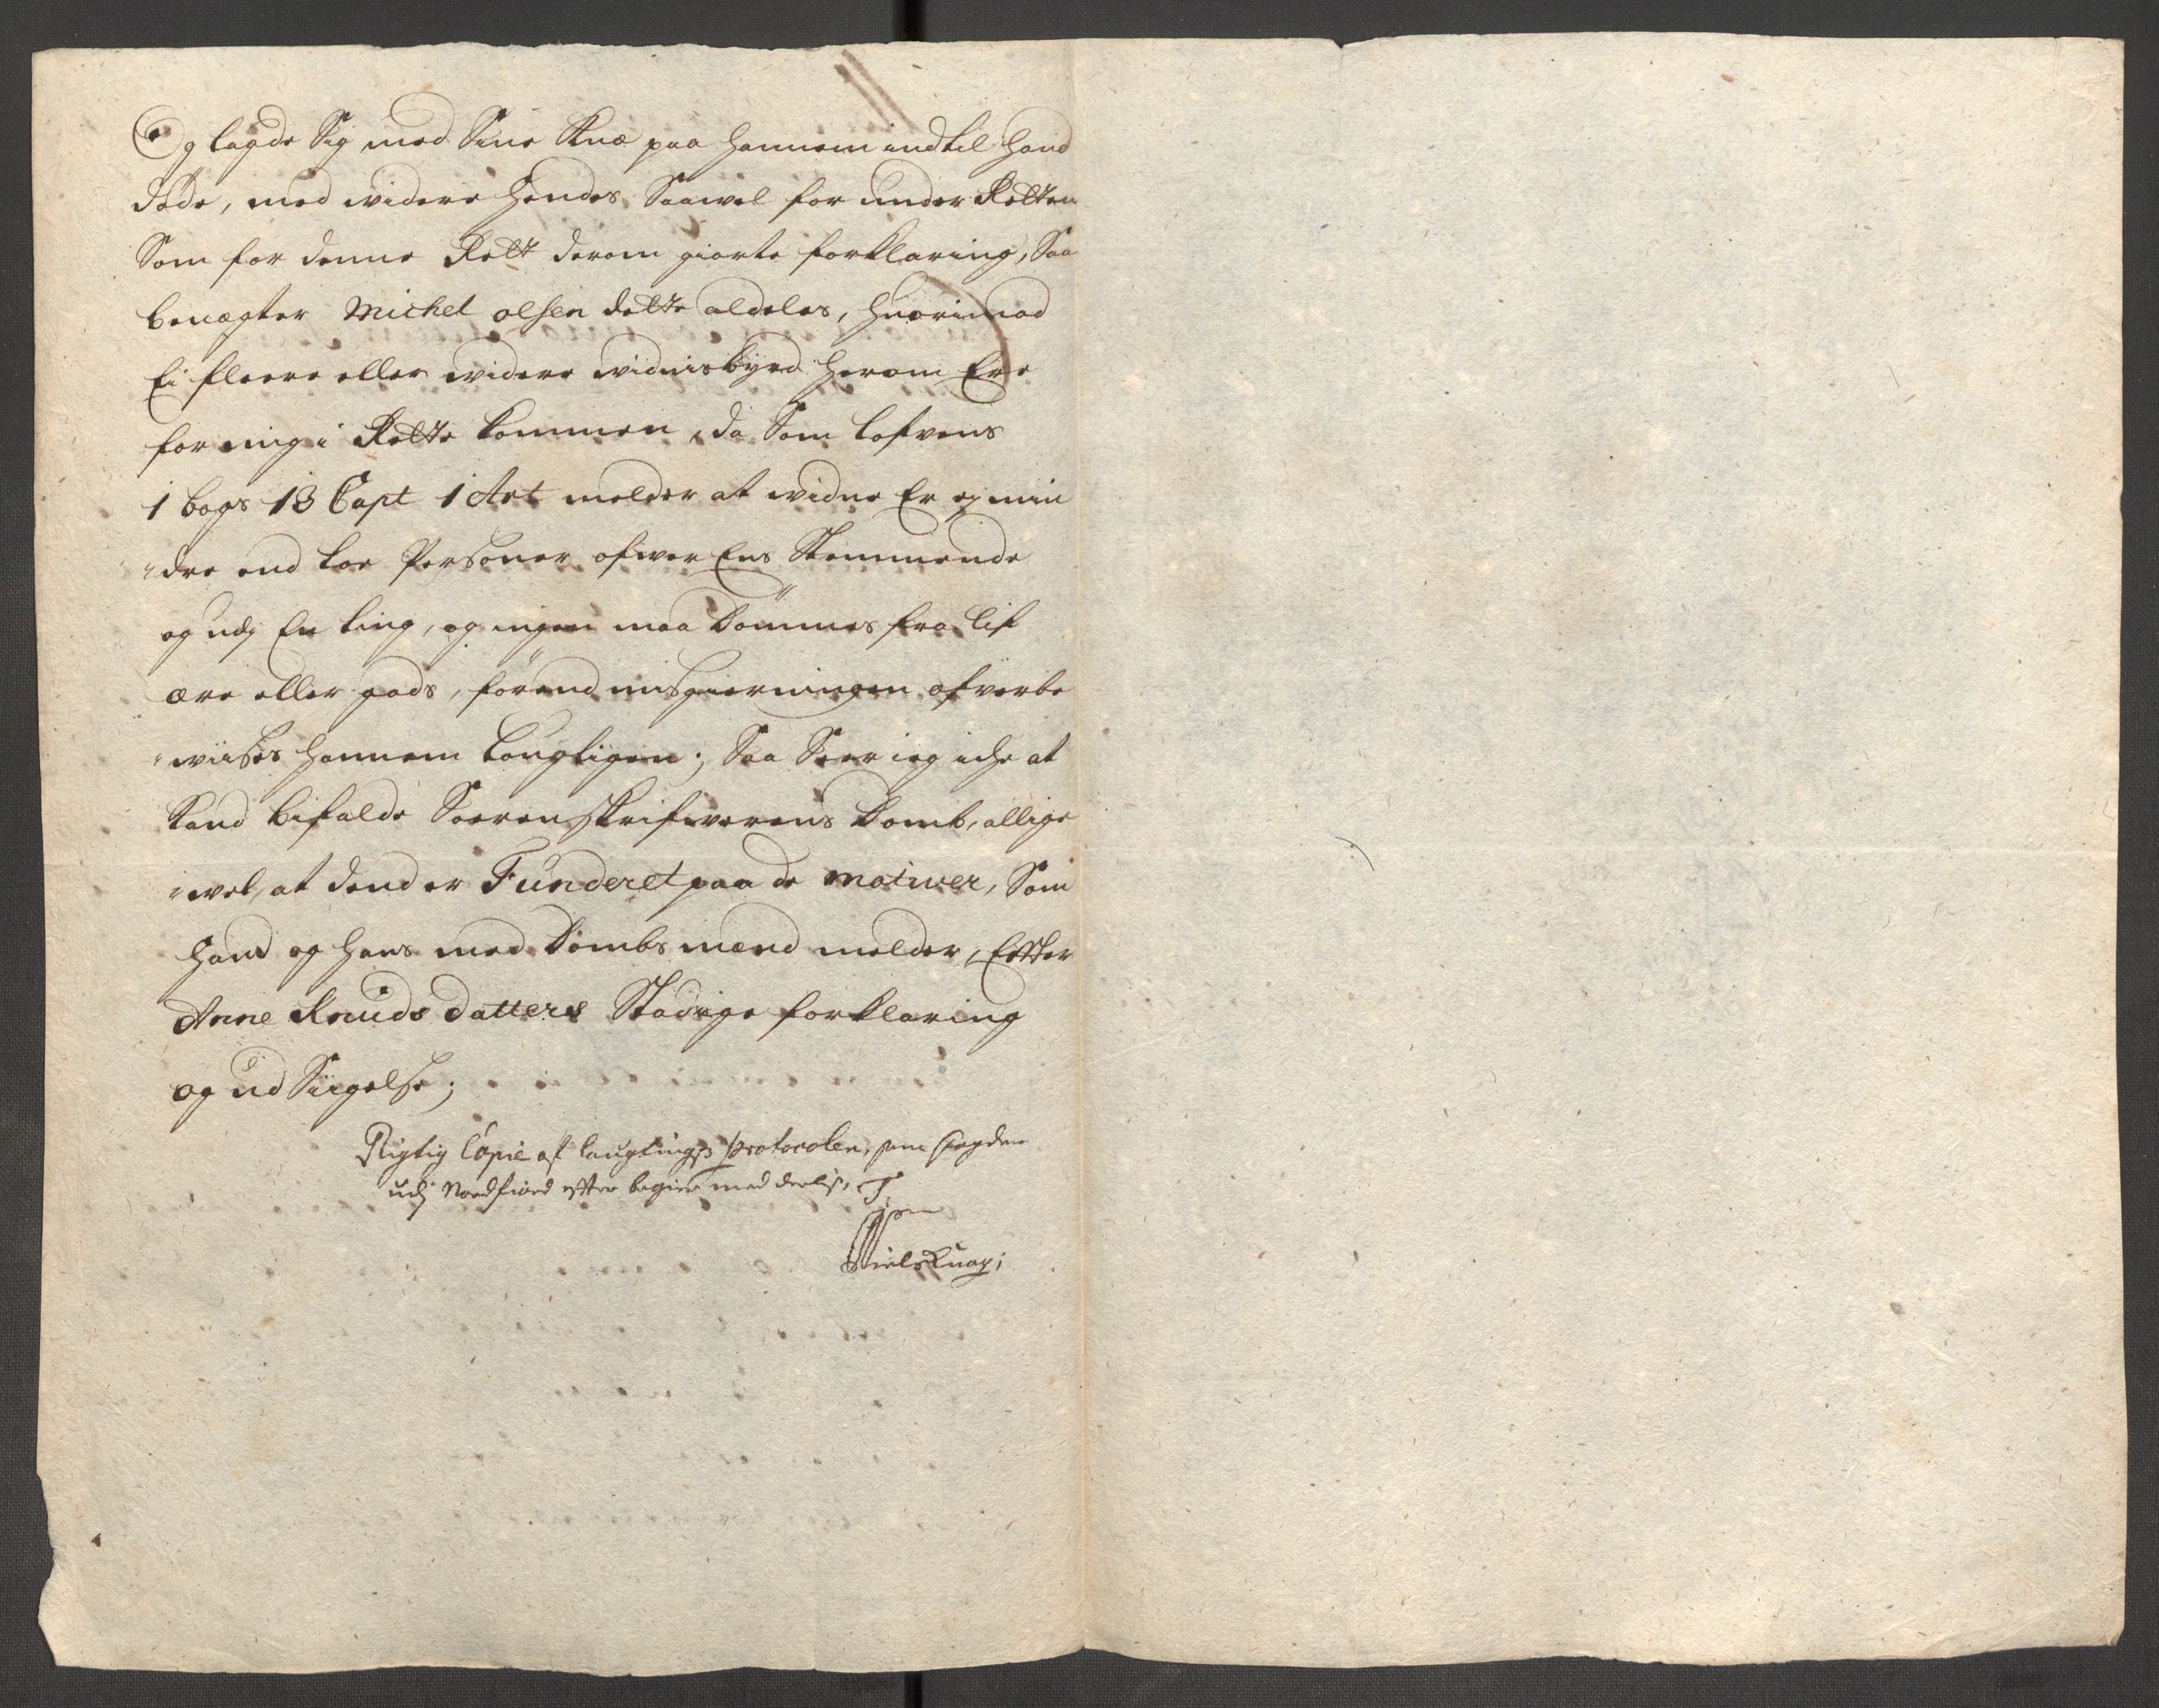 Og lagde Sig med Sine Knæ paa hannem indtil hand
døde, med widere hendes Saawel for under Retten
Som for denne Rett derom giorte forklaring, Saa
benægter Michel olsen dette aldeles, huorimod
Ei fleere eller widere widnisbyrd herom Ere
for mig i Rette kommen, da Som lofvens
1 bogs 13 Capt 1 Art melder at widne Er ej min
dre end toe Personer ofwer Ens Stemmende
og udj En ting, og ingen maa dømmes fra lif
ære eller gods, førend misgierningen ofverbe
wiises hannem lougligen; Saa Seer ieg iche at
kand bifalde Sorenskrifwerens domb, allige
wel, at dend er Funderet paa de motiver, Som
hand og hans med dombs mænd melder, Efter
Anne Knuds datters Stadige forklaring
og ud Siigelse;
Rigtig Copie af laugtings Protocolen, som fogden
udj Nordfiord efter begier med deelis, T:
Niels Knag;